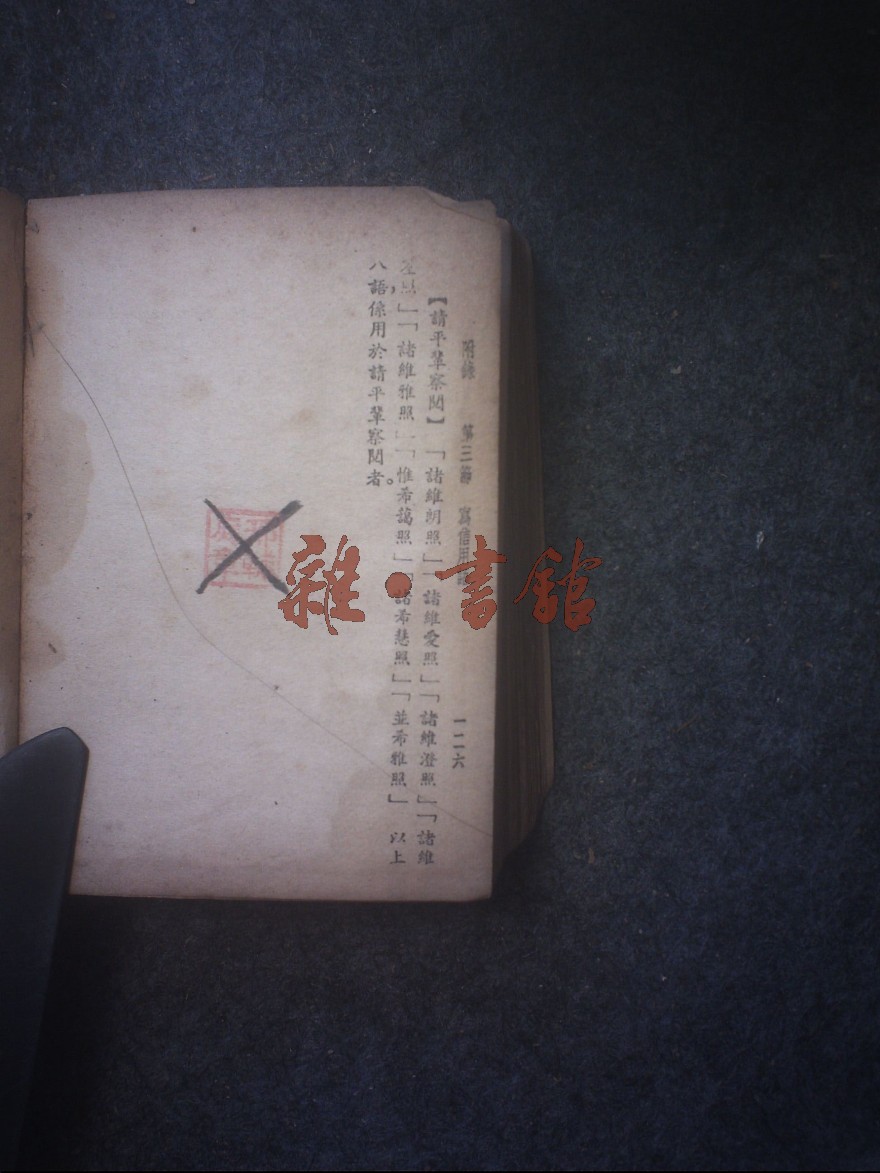 附錄　第三節　寫信用語　一二六
【請平輩察閱】「諸維朗照」「諸維愛照」「諸維澄照」「諸維
荃照」「諸維雅照」「惟希藹照」「諸希慧照」「並希雅照」以上
八語係用於請平輩察閱者。
雜・書館